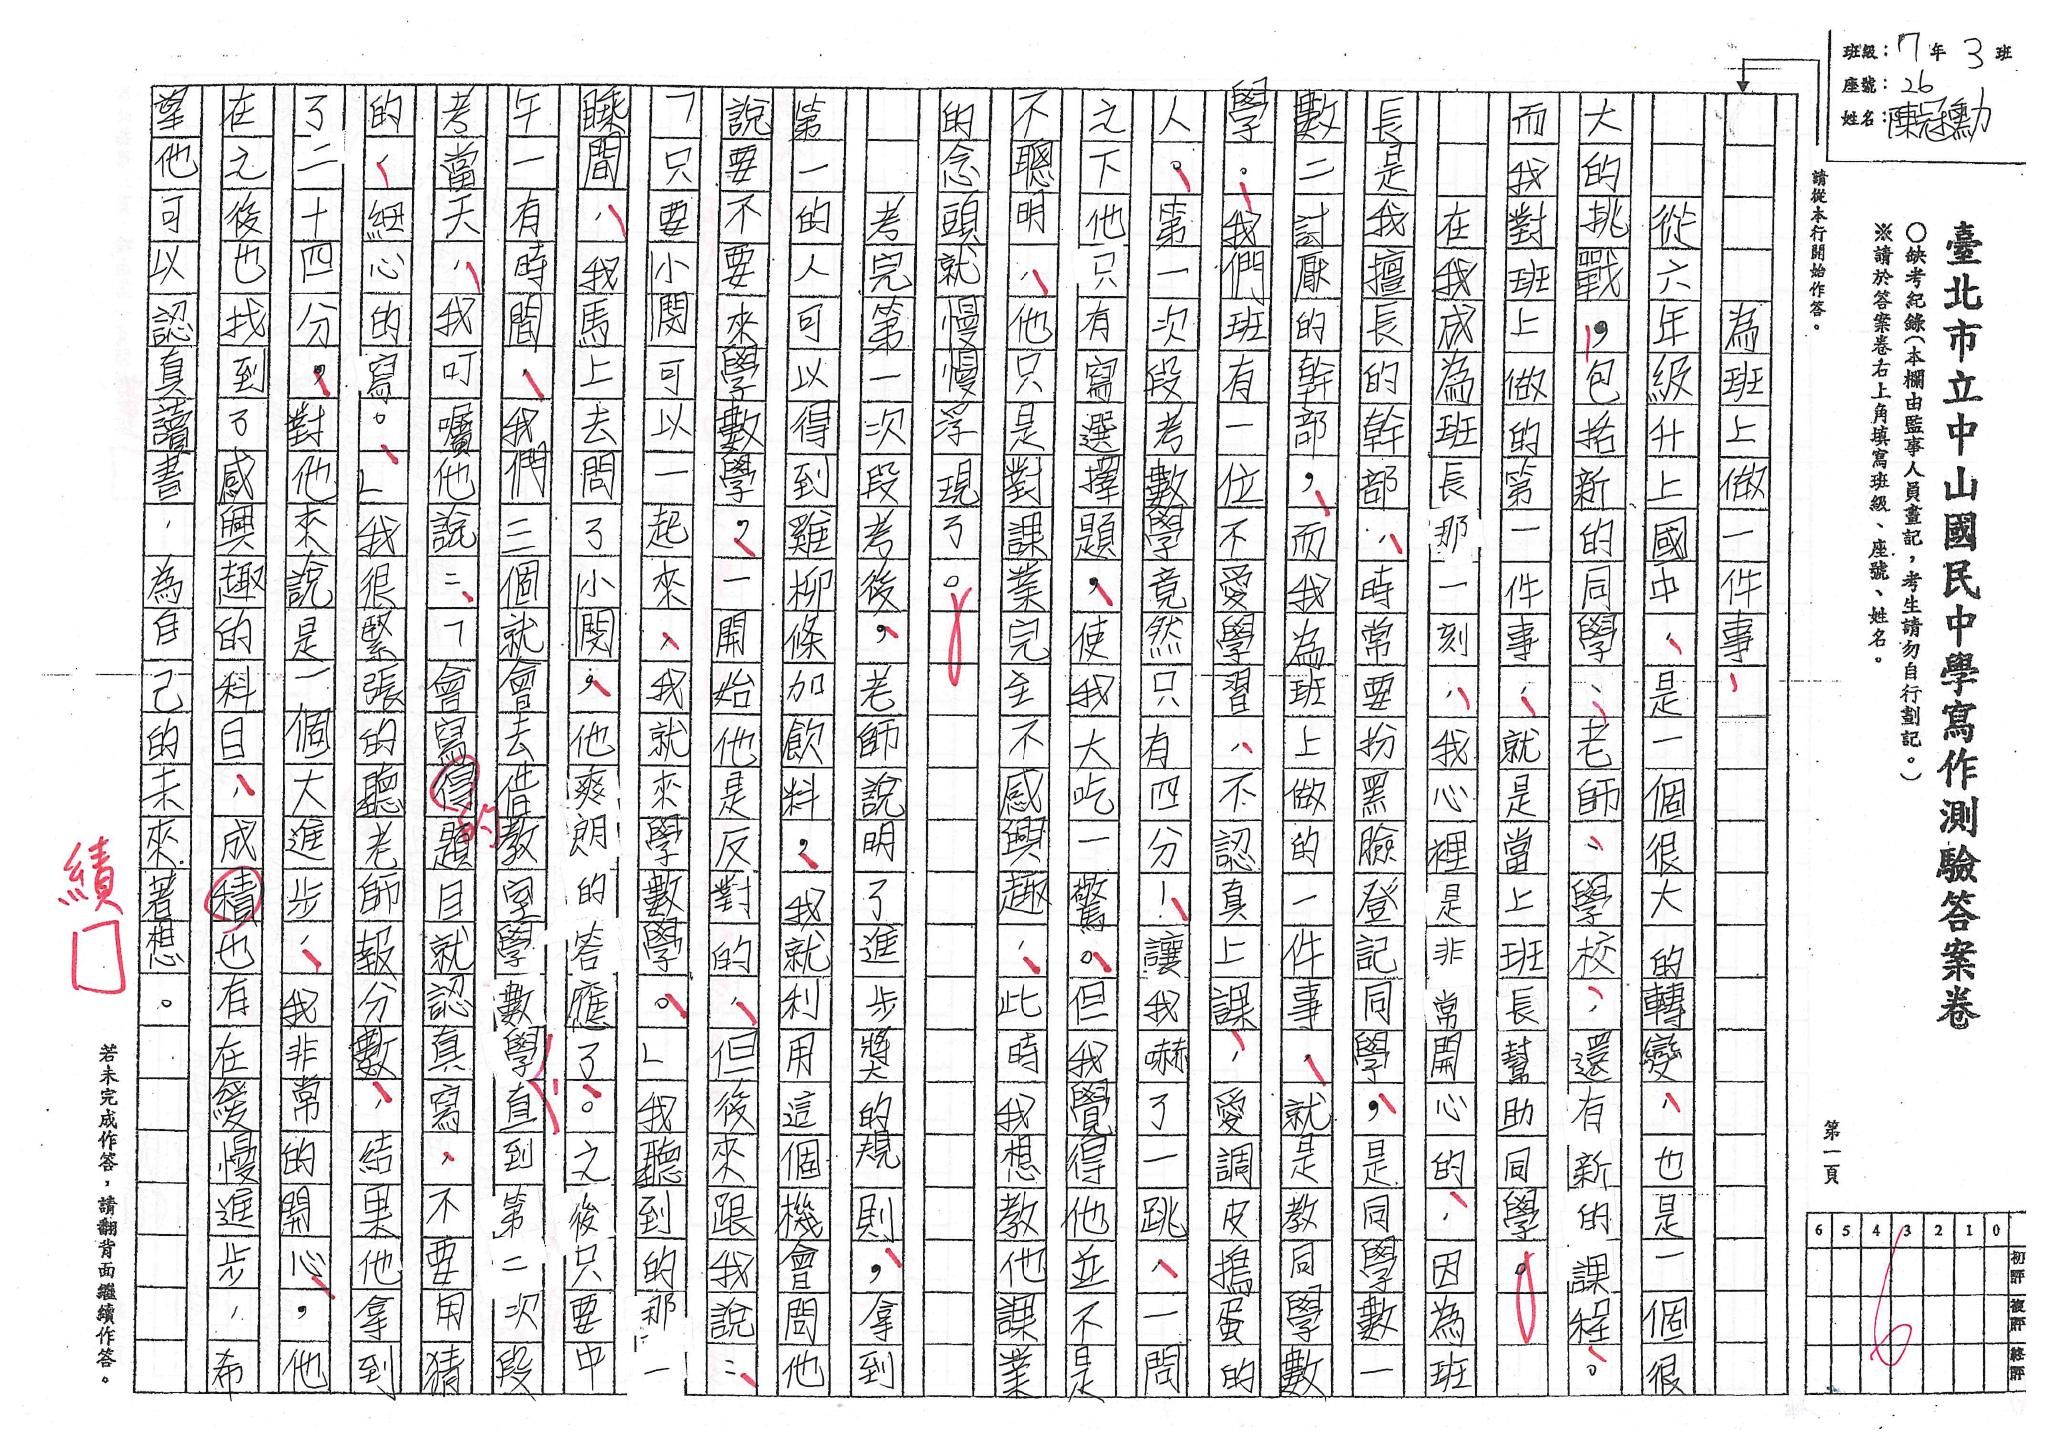 班級：7年3班
座號：26
姓名：陳冠勳
臺北市立中山國民中學寫作測驗答案卷
○缺考紀錄（本欄由監事人員畫記，考生請勿自行劃記。）
※請於答案卷右上角填寫班級、座號、姓名。
第一頁
請從本行開始作答。
為班上做一件事
從六年級升上國中，是一個很大的轉變，也是一個很
大的挑戰，包括新的同學、老師、學校，還有新的課程。
而我對班上做的第一件事，就是當上班長幫助同學。
在我成為班長那一刻，我心裡是非常開心的，因為班
長是我擅長的幹部，時常要扮黑臉登記同學，是同學數一
數二討厭的幹部，而我為班上做的一件事，就是教同學數
學。我們班有一位不愛學習，不認真上課，愛調皮搗蛋的
人。第一次段考數學竟然只有四分！讓我嚇了一跳，一問
之下他只有寫選擇題，使我大吃一驚。但我覺得他並不是
不聰明，他只是對課業完全不感興趣，此時我想教他課業
的念頭就慢慢浮現了。
考完第一次段考後，老師說明了進步獎的規則，拿到
第一的人可以得到雞柳條加飲料，我就利用這個機會問他
說要不要來學數學，一開始他是反對的，但後來跟我說：
「只要小閔可以一起來，我就來學數學。」我聽到的那一
瞬間，我馬上去問了小閔，他爽朗的答應了。之後只要中
午一有時間，我們三個就會去借教室學數學，直到第二次段
考當天，我叮嚀他說：「會寫得題目就認真寫，不要用猜
的，細心的寫。」我很緊張的聽老師報分數，結果他拿到
了二十四分，對他來說是一個大進步，我非常的開心，他
在之後也找到了感興趣的科目，成積也有在緩慢進步，希
望他可以認真讀書，為自己的未來著想。
的
績
若未完成作答，請翻背面繼續作答。
6 5 4 3 2 1 0
初評
複評
終評
6